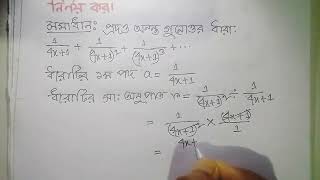 নির্ণয় কর।
সমাধান: প্রদত্ত অনন্ত গুনোত্তর ধারা:
1/(4x+1) + 1/(4x+1)² + 1/(4x+1)³ + ...
ধারাটির ১ম পদ a = 1/(4x+1)
ধারাটির সাঃ অনুপাত r = 1/(4x+1)² ÷ 1/(4x+1)
= 1/(4x+1)² × (4x+1)/1
= 4x+